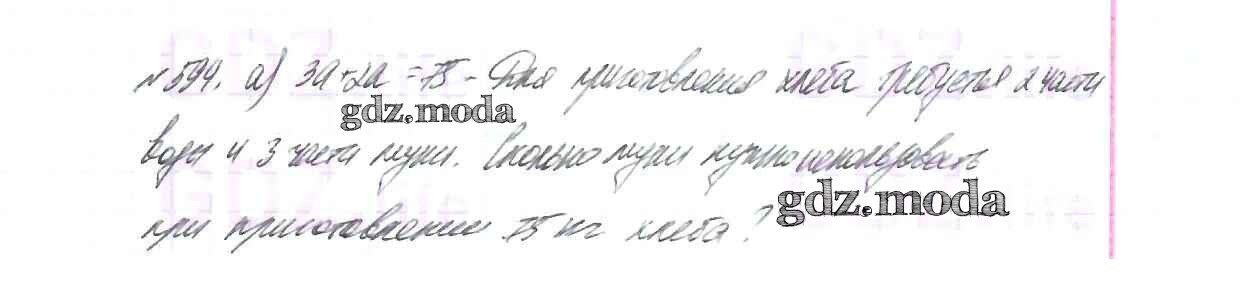 №599. а) 3а+2а=75 - Для приготовления хлеба требуется 2 части
gdz.moda
воды и 3 части муки. Сколько муки нужно использовать
gdz.moda
при приготовлении 75 кг хлеба?